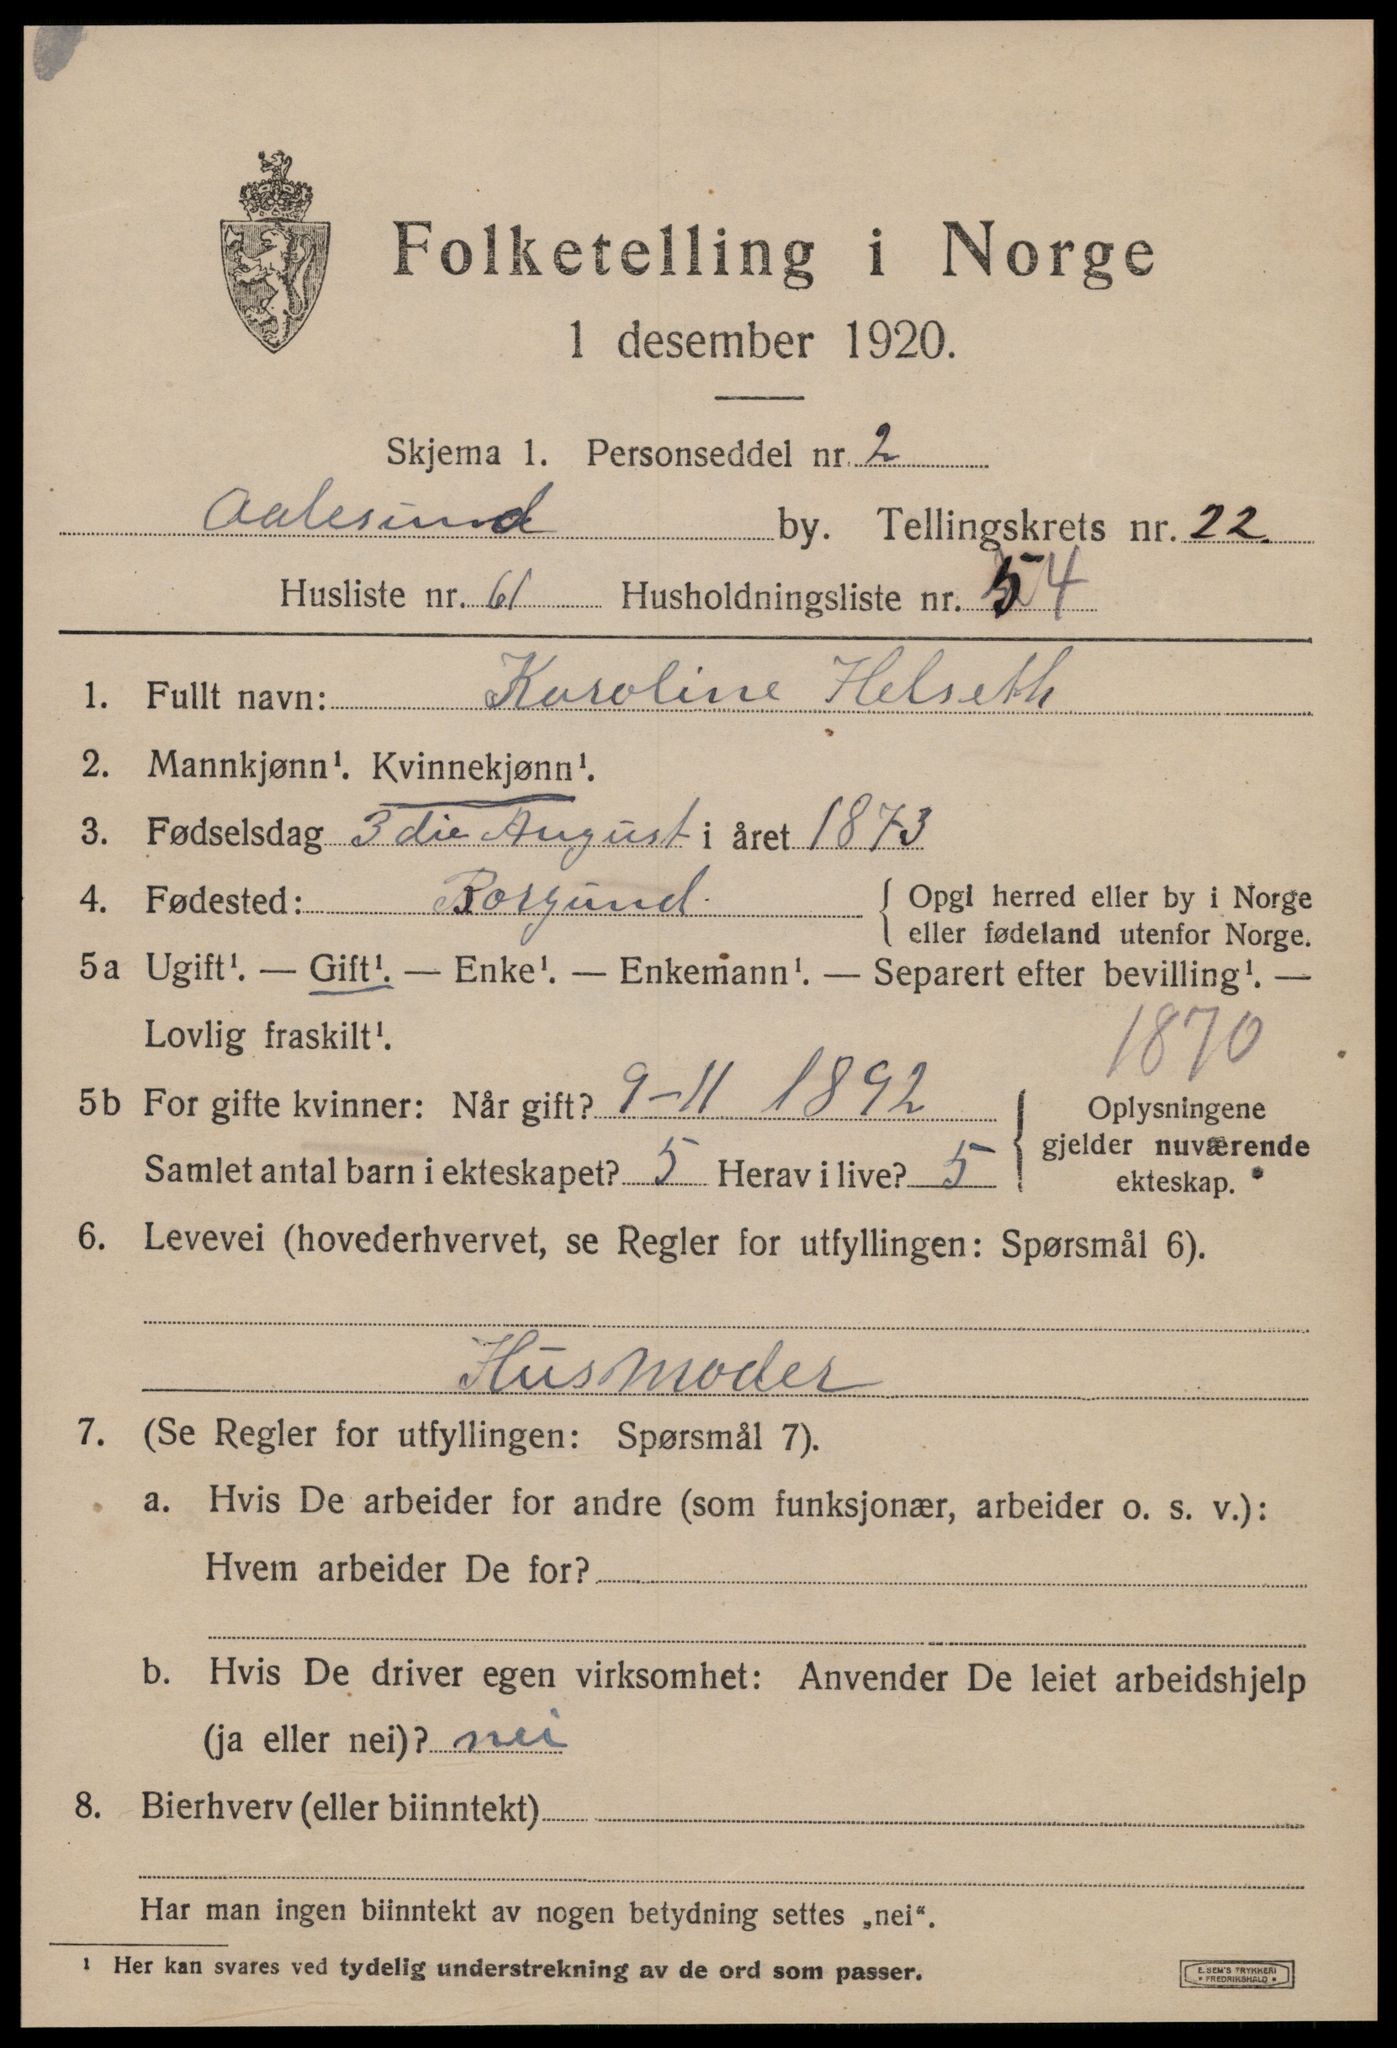 Folketelling i Norge
1 desember 1920.
Skjema 1. Personseddel nr. 2
Aalesund by. Tellingskrets nr. 22.
Husliste nr. 61 Husholdningsliste nr. 54
1. Fullt navn: Karoline Helseth
2. Mannkjønn¹. Kvinnekjønn¹.
3. Fødselsdag 3die August i året 1873
4. Fødested: Borgund. { Opgi herred eller by i Norge
eller fødeland utenfor Norge.
5a Ugift¹. — Gift¹. — Enke¹. — Enkemann¹. — Separert efter bevilling¹. —
Lovlig fraskilt¹.
1870
5b For gifte kvinner: Når gift? 9-11 1892
Samlet antal barn i ekteskapet? 5 Herav i live? 5
Oplysningene
gjelder nuværende
ekteskap.
6. Levevei (hovederhvervet, se Regler for utfyllingen: Spørsmål 6).
Husmoder
7. (Se Regler for utfyllingen: Spørsmål 7).
a. Hvis De arbeider for andre (som funksjonær, arbeider o. s. v.):
Hvem arbeider De for?
b. Hvis De driver egen virksomhet: Anvender De leiet arbeidshjelp
(ja eller nei)? nei
8. Bierhverv (eller biinntekt)
Har man ingen biinntekt av nogen betydning settes „nei“.
¹ Her kan svares ved tydelig understrekning av de ord som passer.
E. SEM'S TRYKKERI
• FREDRIKSHALD •